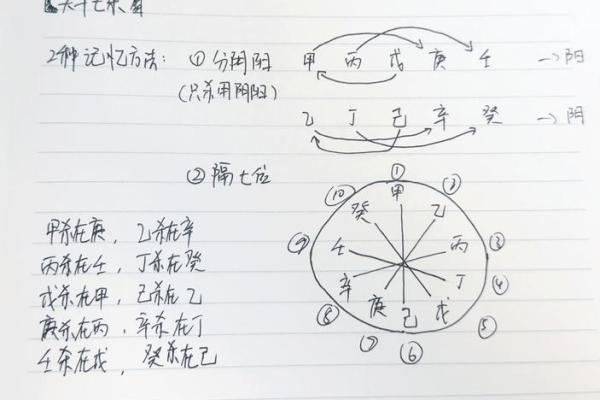 天干七杀图
2种记忆方法: ① 分阴阳 甲 丙 戊 庚 壬 → 阳
(只杀用阴阳)
乙 丁 己 辛 癸 → 阴
② 隔七位
① 甲
② 乙
③ 丙
④ 丁
⑤ 戊
⑥ 己
⑦ 庚
⑧ 辛
⑨ 壬
⑩ 癸
甲杀在庚, 乙杀在辛
丙杀在壬, 丁杀在癸
戊杀在甲, 己杀在乙
庚杀在丙, 辛杀在丁
壬杀在戊, 癸杀在己